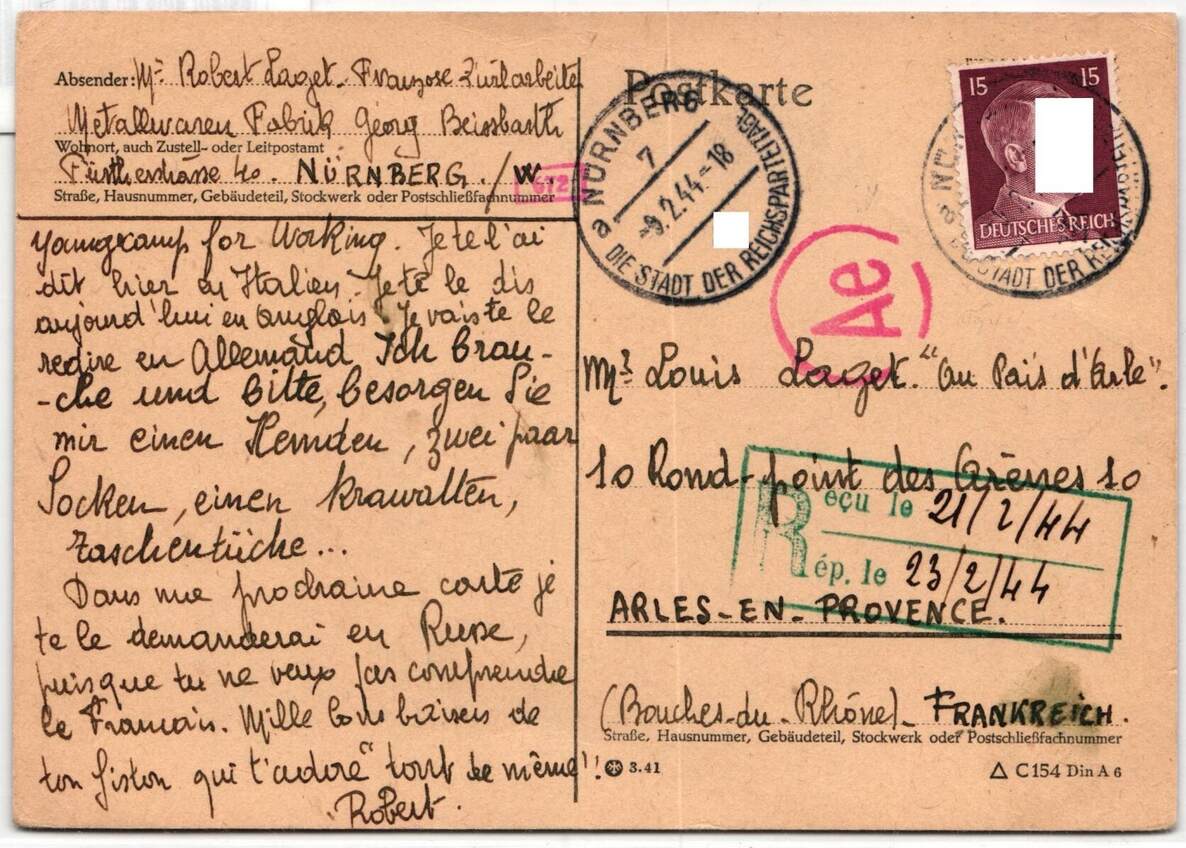 Postkarte
Absender: Mr Robert Laget. Franzose Zivilarbeite
Metallwaren Fabrik Georg Beissbarth
Wohnort, auch Zustell- oder Leitpostamt
Fürtherstrasse 40. NÜRNBERG. /W.
Straße, Hausnummer, Gebäudeteil, Stockwerk oder Postschließfachnummer
672
a NÜRNBERG 7
-9.2.44-18
DIE STADT DER REICHSPARTEITAGE
15 15
DEUTSCHES REICH
Ae
for Working. Je te l'ai
dit hier en Italien. Je te le dis
aujourd'hui en anglais. Je vais te le
redire en Allemand Ich brau-
-che und bitte, besorgen Sie
mir einen Hemden, zwei paar
Socken, einen Krawatten,
Taschentüche...
Dans ma prochaine carte je
te le demanderai en Russe,
puisque tu ne veux pas comprendre
le Français. Mille bons baisers de
ton fiston qui t'adore "tout de même"!
Robert.
Mr Louis Laget. "Au Païs d'Arle".
10 Rond-point des Arènes 10
Reçu le 21/2/44
Rép. le 23/2/44
ARLES-EN-PROVENCE.
(Bouches-du-Rhône)- FRANKREICH.
Straße, Hausnummer, Gebäudeteil, Stockwerk oder Postschließfachnummer
3.41
C 154 Din A 6